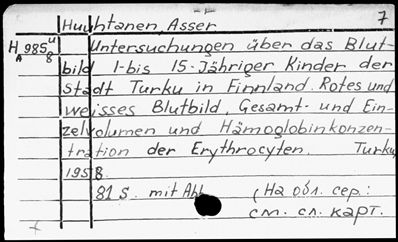 Huuhtanen, Asser 7
H 985 u/8 Untersuchungen über das Blut-
A
bild 1-bis 15-Jähriger Kinder der
Stadt Turku in Finnland. Rotes und
weisses Blutbild, Gesamt- und Ein-
zelvolumen und Hämoglobinkonzen-
tration der Erythrocyten. Turku,
1958.
81 S. mit Abb. (На обл. сер.:
см. сл. карт.